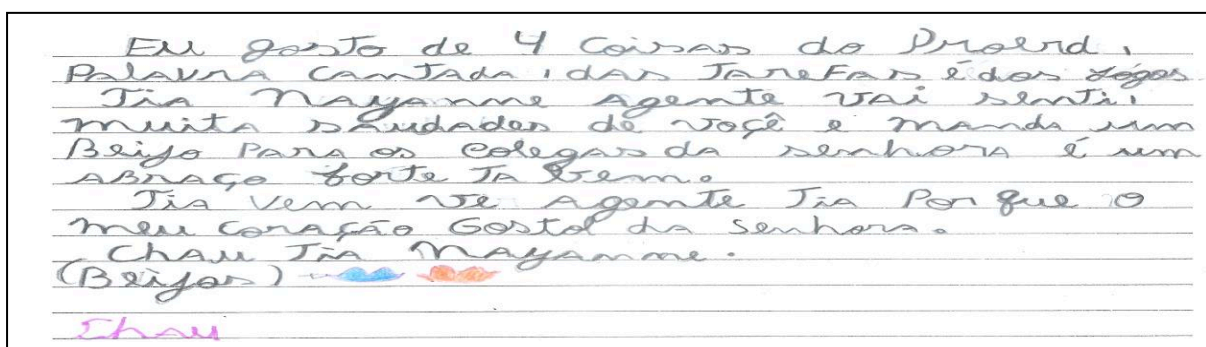 Eu gosto de 4 coisas do Proerd,
Palavra cantada, das Tarefas é dos Jogos
Tia Nayanne Agente vai senti,
muita saudades de voçê e manda um
Beijo Para os colegas da senhora é um
ABraço forte TA Bem.
Tia Vem ve Agente Tia Por que o
meu coração Gostol da senhora.
Chau Tia Mayanne.
(Beijos)
Chau